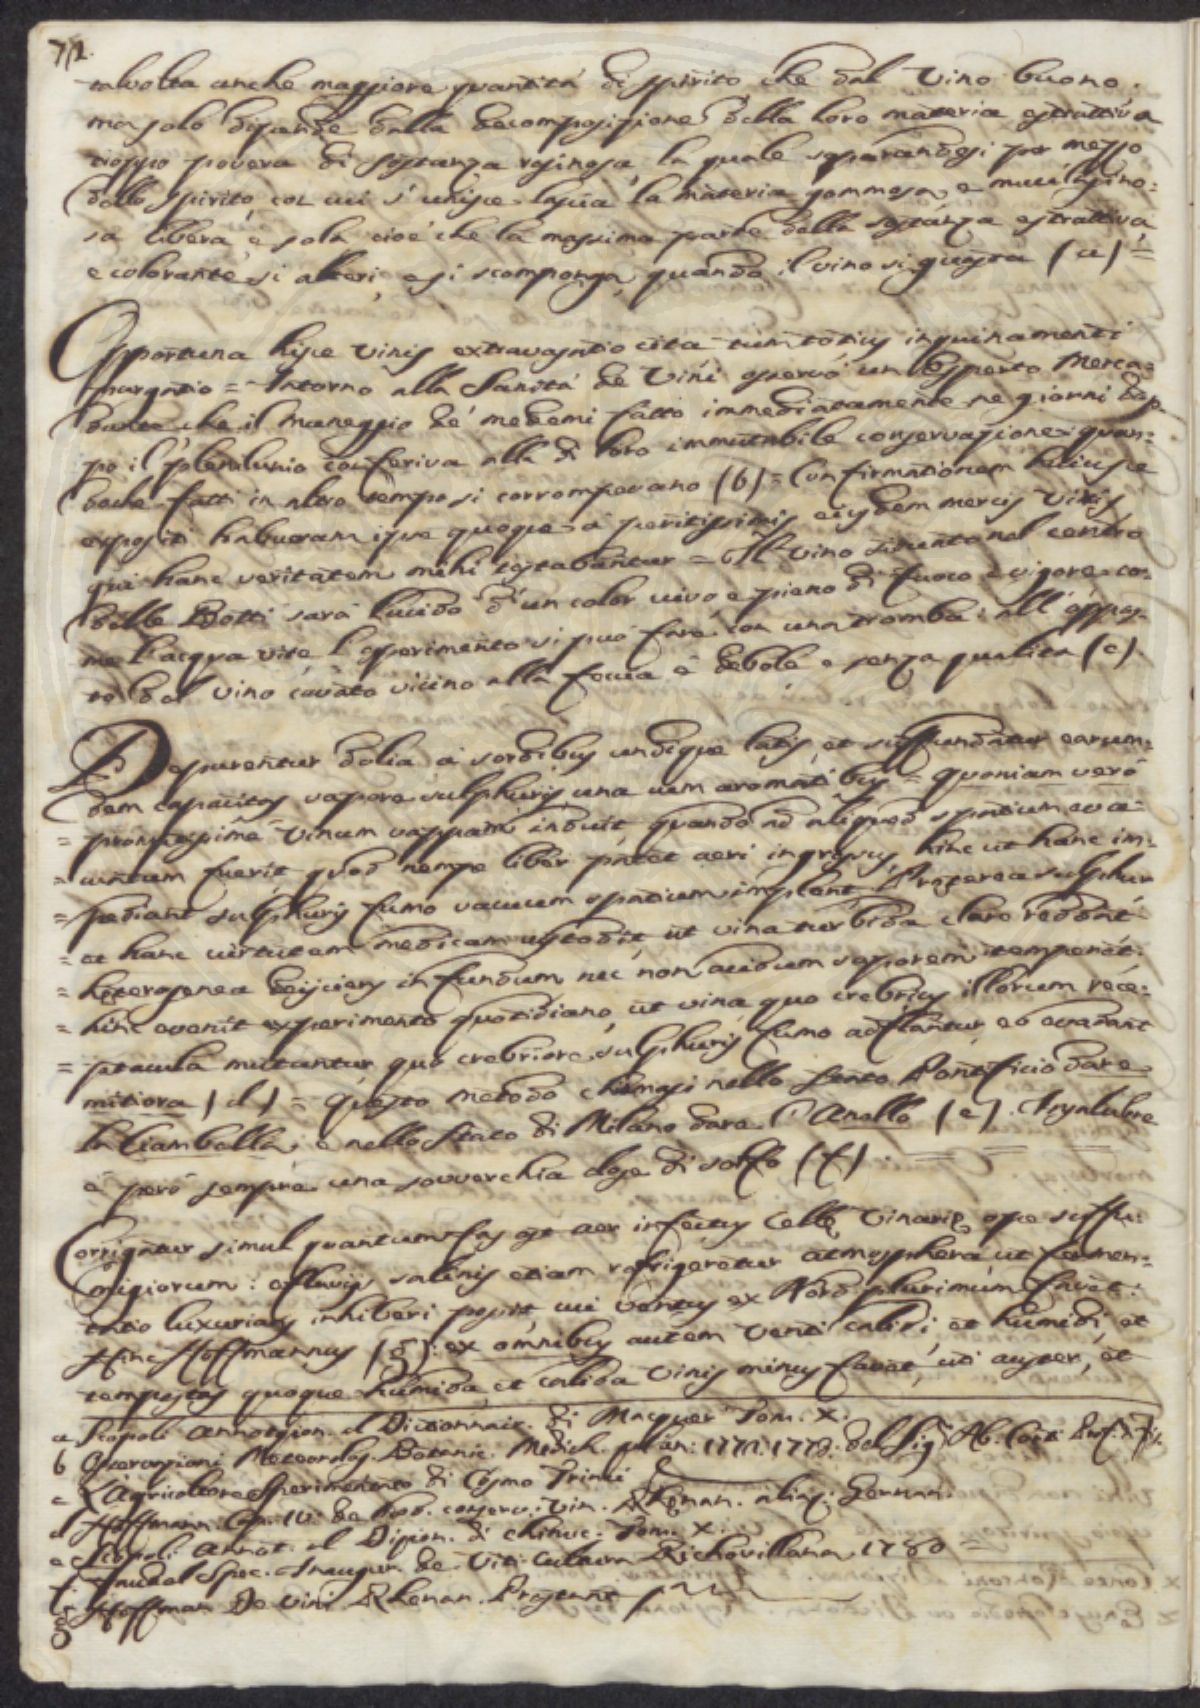 talvolta anche maggiore quantità di spirito, che dal Vino buono.
ma solo dipende dalla decomposizione della loro materia estrattiva
troppo povera di sostanza resinosa, la quale separandosi per mezzo
dello spirito, col cui s'unisce lascia la materia gommosa, e mucilagino:
sa libera, e sola cioè che la massima parte della sostanza estrattiva
e colorante si alteri, e si scomponga, quando il vino si guasta (a) =
Opportuna hisce Vinis extravasatio cita inquinamenti
purgatio = Intorno alla Sanità de Vini osservò un esperto Merca=
dante che il maneggio de' medemi fatto immediatamente ne giorni dop=
po il plenilunio conferiva alla di loro immutabile conservazione; quan:
doche fatti in altro tempo si corrompevano (b) = Confirmationem huiusce
expositi habueram ipse quoque à peritissimis eiusdem mercis Viris
qui hanc veritatem mihi testabantur = Il Vino nel centro
delle Botti sarà lucido d'un color vivo e pieno di fuoco, e vigore co:
me l'acqua vite l'esperimento si può fare con una tromba: all'oppos=
to del vino cavato vicino alla feccia è debole e senza qualità (c)
Depurentur dolia à sordibus undique latis, et suffundatur earum:
dem capacitas vapore sulphuris, una cum aromatibus = quoniam verò
= promptissimè Vinum vappam induit, quando ad aliquod spatium eva=
= cuatum fuerit quod nempe liber patet aeri ingressus, hinc ut hanc im:
= pediant sulphuris fumo vacuum spatium implent. Praeterea sulphur
= et hanc virtutem medicam custodit, ut vina turbida clara reddat
= heterogenea deijciens in fundum nec non acidum saporem temperat:
= hinc evenit experimento quotidiano, ut vina quo crebrius illorum rece:
= ptacula mutantur, quò crebriore sulphuris fumo adflantur, eò evadant
mitiora (d) = questo metodo chiamasi nello Stato Pontificio dare
la Ciambella, e nello Stato di Milano dare l'Anello (e). Insalubre
è però sempre una soverchia dose di solfo (f).
Corrigatur simul quantum fas est aer infectus Cellę Vinarię ope suffu:
migiorum: effluvijs salinis etiam refrigeretur atmosphera, ut fermen=
tatio luxurians inhiberi possit, cui Ventus ex Nord plurimum favet:
Hinc Hoffmannus (g): ex omnibus autem Venti calidi, et humidi, et
tempestas quoque humida, et calida Vinis minus favet, uti auster, et
a Scopoli Annotazion. al Dictionnair. di Macquer Tom. X.
b Meteorolog. Botanic. Medich. per an: 1777. 1778. del Sig.
c L'Agricoltore Sperimentato di Cosmo Trinci
d Hoffmann. Cap. IV. de conserv: Vin. Rhenan. aliaq; German.
e Scopoli Annot. al Dizion. di Chimic. Tom. X.
f. Spec. Inaugur. de Vit. Cultura Richovillana 1780 =
g Hoffman De Vini Rhenan. Prestant